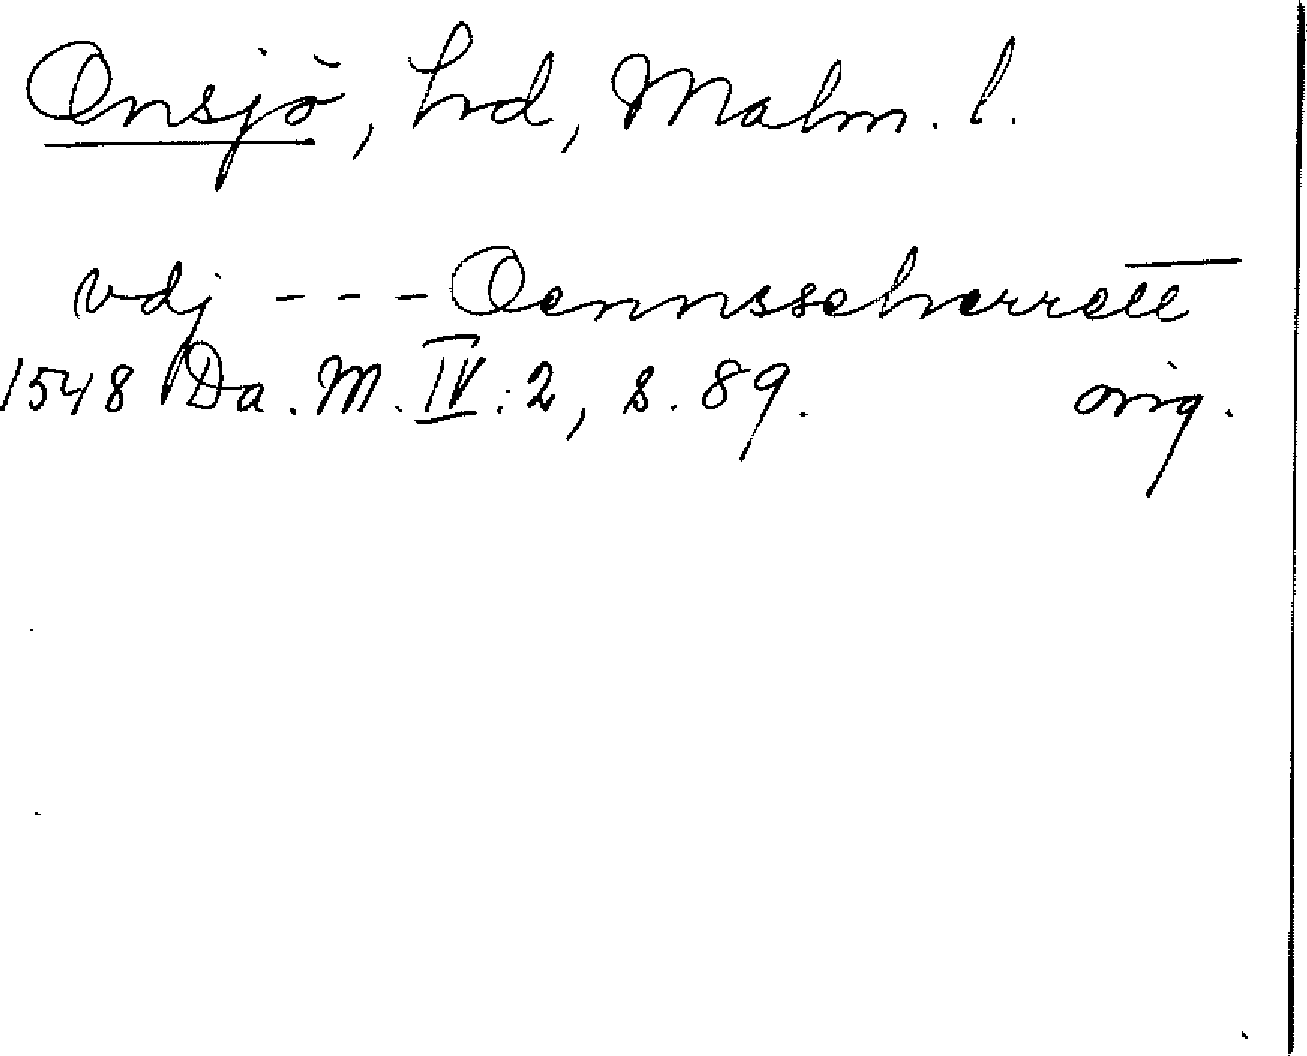 Onsjö, hd, Malm. l.
vdj --- Oennsseherrett
1548 Da. M. IV:2, s. 89. orig.